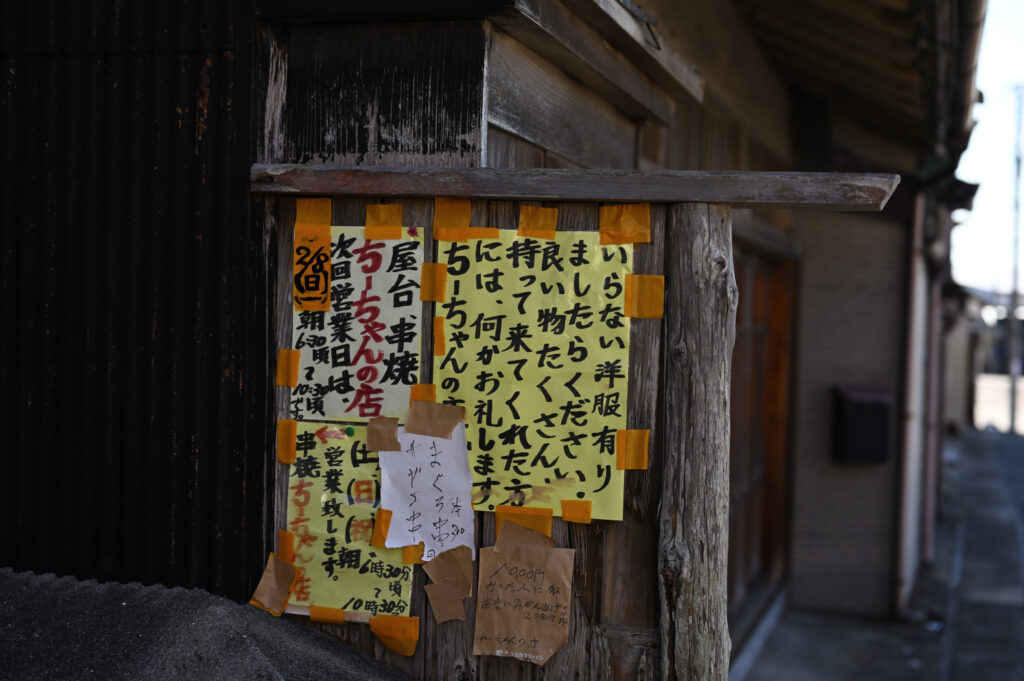 いらない洋服有り
ましたらください.
良い物たくさん.
持って来てくれた方
には、何かお礼します.
ちーちゃんの
屋台、串焼
ちーちゃんの店
次回営業日は、
2/8
(日)
朝6.30頃
て10.30頃
です。
(土)(日)
朝6時30分
頃
て
10時30分
営業致します。
串焼ちーちゃん店
まぐろ串
サザエ串
かった人にね
ちーちゃんの店